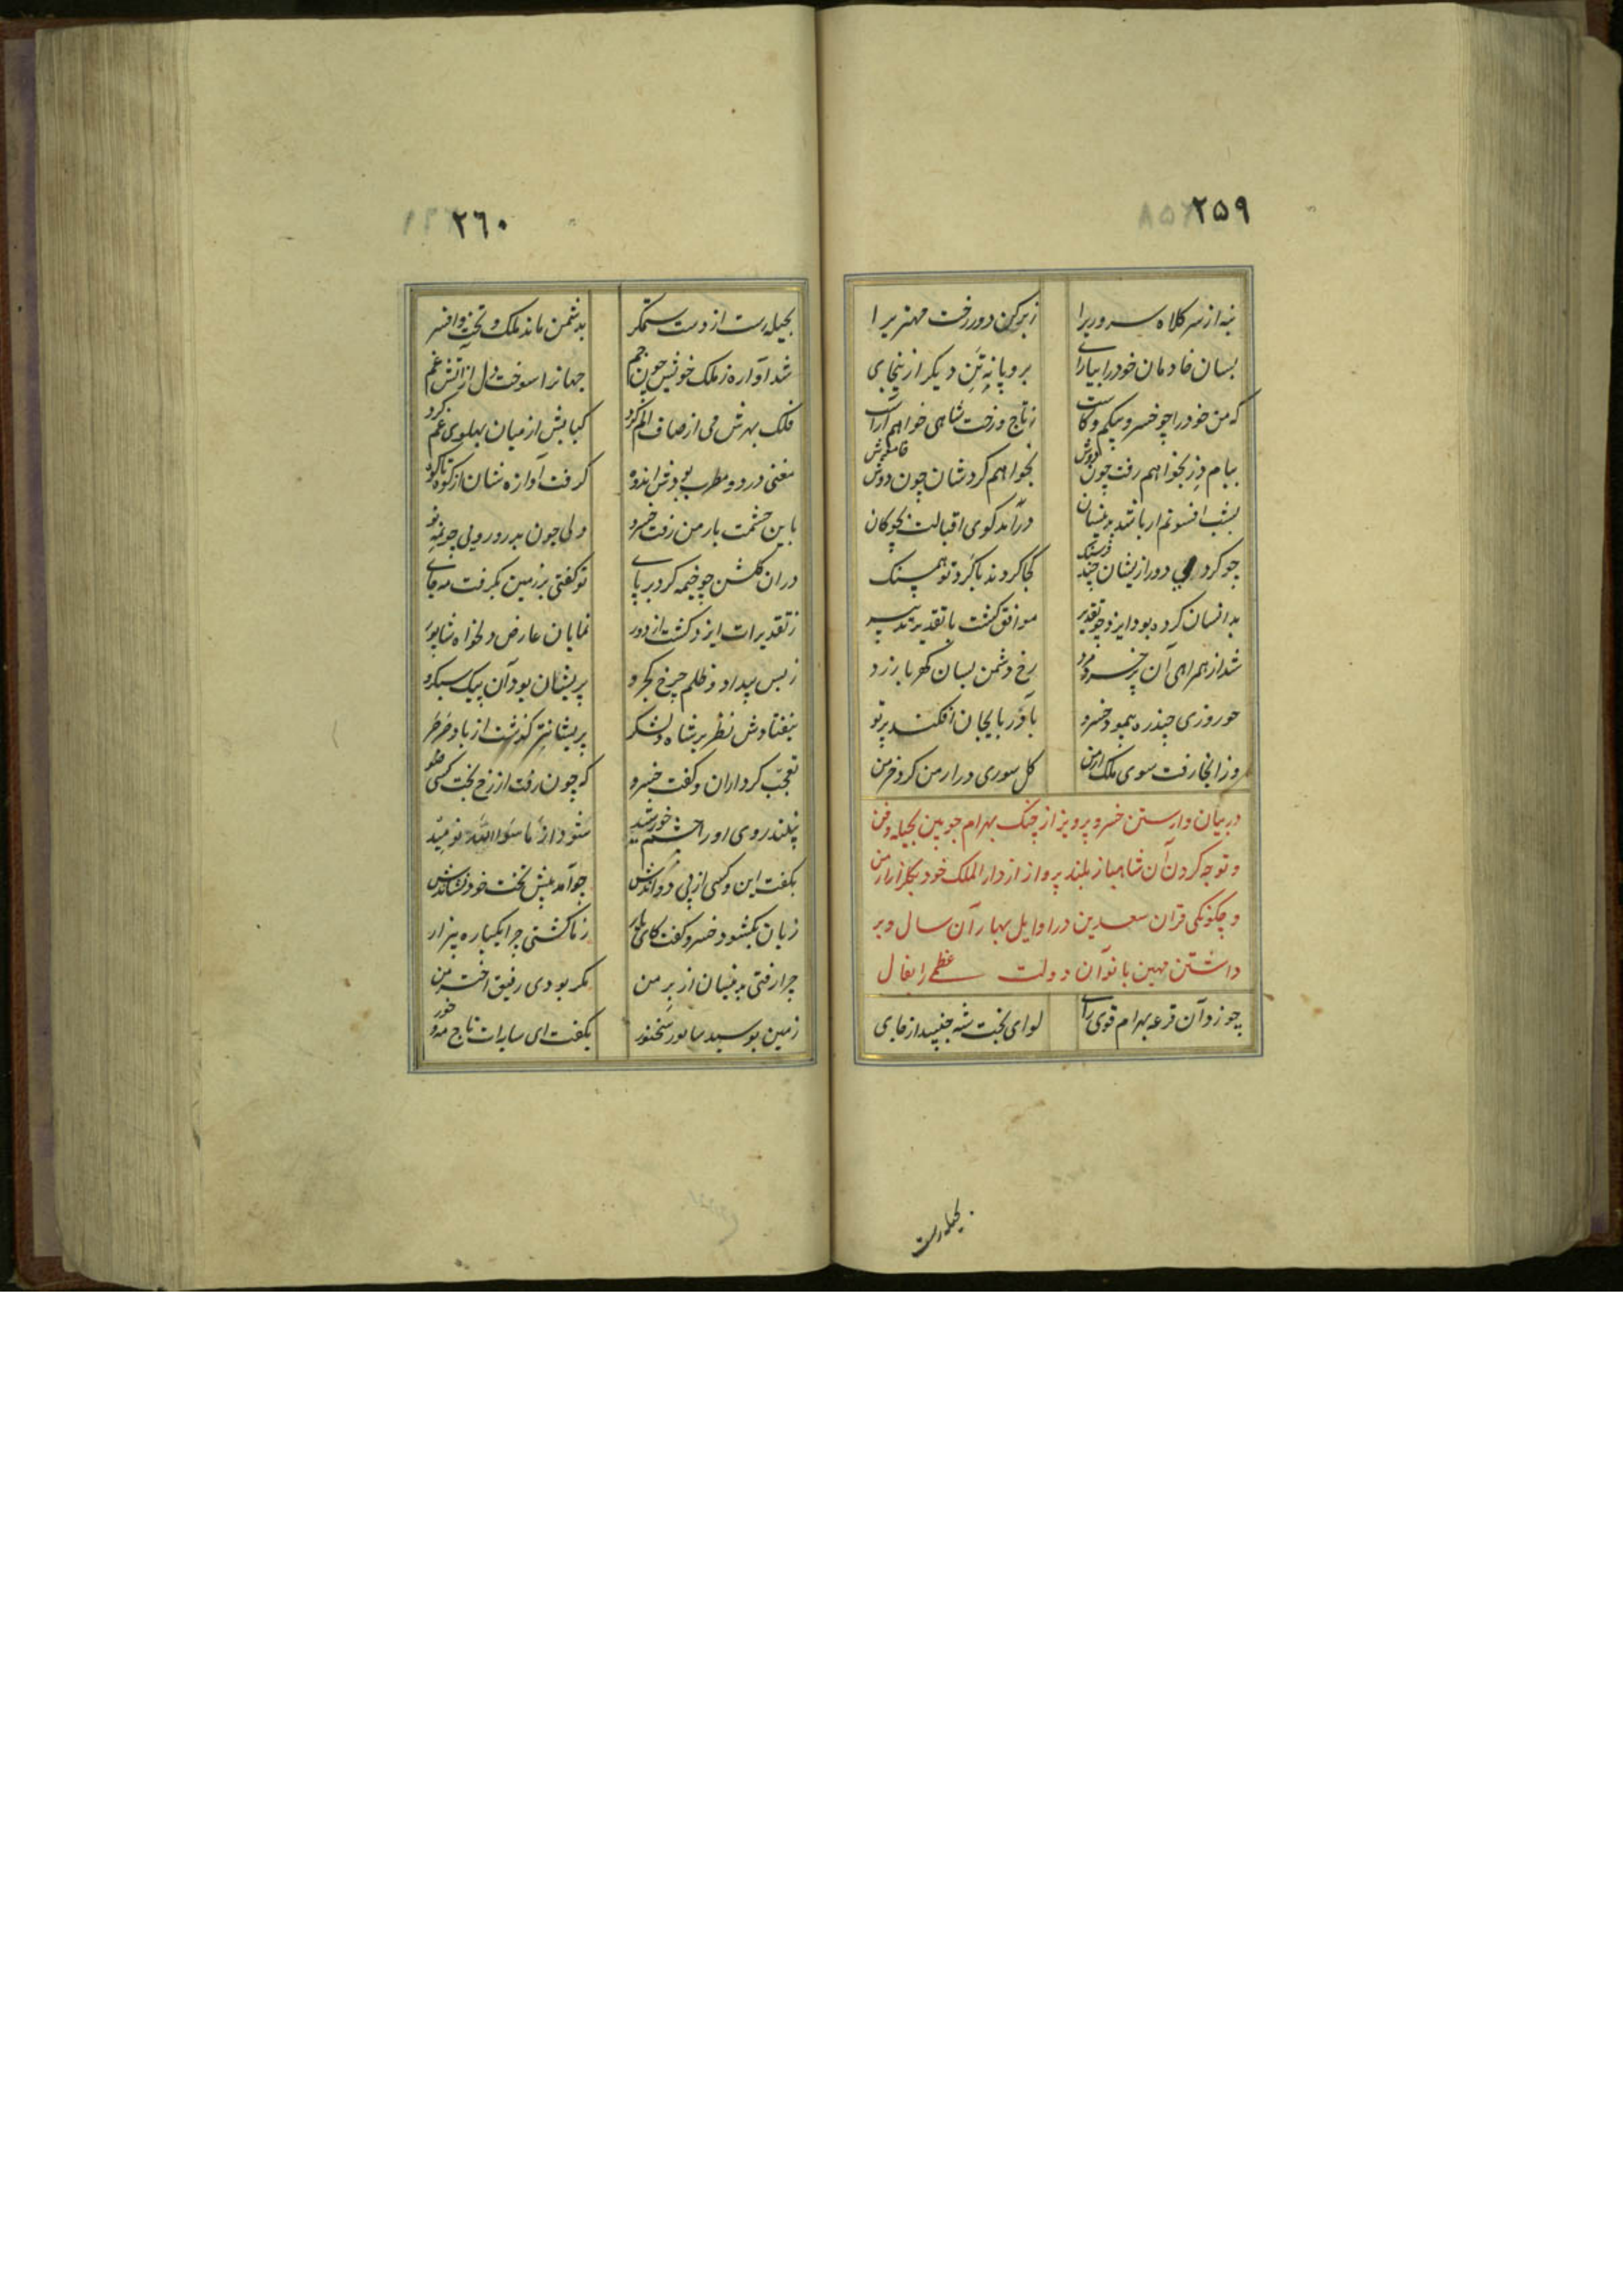 ۲۵۹
بنه از سر کلاه سروری را ز بر کن دور رخت مهتری را
بسان خادمان خود را بیارای برو با نه تن دیگر ازینجای
که من خود را چو خسرو بی کم و کاست ز تاج و رخت شاهی خواهم آراست
ببام دز بخواهم رفت چون دوش بخواهم کردشان چون دوش خاموش
بشب افسونم ار باشد بدینسان درآید گوی اقبالت بچوگان
چو کردی دور ازیشان چند فرسنگ کجا گردند با گرد تو همسنگ
بدانسان کرده بود ایزد چو تقدیر موافق گشت با تقدیر تدبیر
شد از همراهی آن پر خرد مرد رخ دشمن بسان کهربا زرد
چو روزی چند ره پیمود خسرو بآذربایجان افکند پرتو
وز انجا رفت سوی ملک ارمن گل سوری در ارمن کرد خرمن
در بیان وارستن خسرو پرویز از چنک بهرام چوبین بحیله و فن
و توجه کردن آن شاهباز بلند پرواز از دار الملک خود بگلزار ارمن
و چگونگی قران سعدین در اوایل بهار آن سال و بر
داشتن مهین بانو آن دولت عظمی را بفال
چو زد آن قرعه بهرام قوی رای لوای بخت شه جنبید از جای
بحیله رست
۲۶۰
بحیله رست از دست ستمگر بدشمن ماند ملک و تخت و افسر
شد آواره ز ملک خویش چون جم جهانرا سوخت دل از آتش غم
فلک بهرش می از صاف الم کرد کبابش از میان پهلوی غم کرد
مغنی درد و مطرب بودش اندوه گرفت آوازه شان از کوه تا کوه
باین حشمت بارمن رفت خسرو ولی چون بدر و رویی چون مه نو
در ان گلشن چو خیمه کرد بر پای تو گفتی بر زمین بگرفت مه جای
ز تقدیرات ایزد گشت از دور نمایان عارض دلخواه شاپور
ز بس بیداد و ظلم چرخ کجرو پریشان بود آن پیک سبکرو
نیفتادش نظر بر شاه و لشکر پریشانتر گذشت از باد صرصر
تعجب کرد از ان و گفت خسرو که چون رفت از رخ بخت کسی ضو
نبیند روی او را چشم خورشید شود از ما سوا الله نومید
بگفت این و کسی از پی دواندش چو آمد پیش تخت خود نشاندش
زبان بگشود خسرو گفت کای یار ز ما گشتی چرا یکباره بیزار
چرا رفتی بدینسان از بر من مگر بودی رفیق اختر من
زمین بوسید شاپور سخنور بگفت ای سایه ات تاج مه و خور